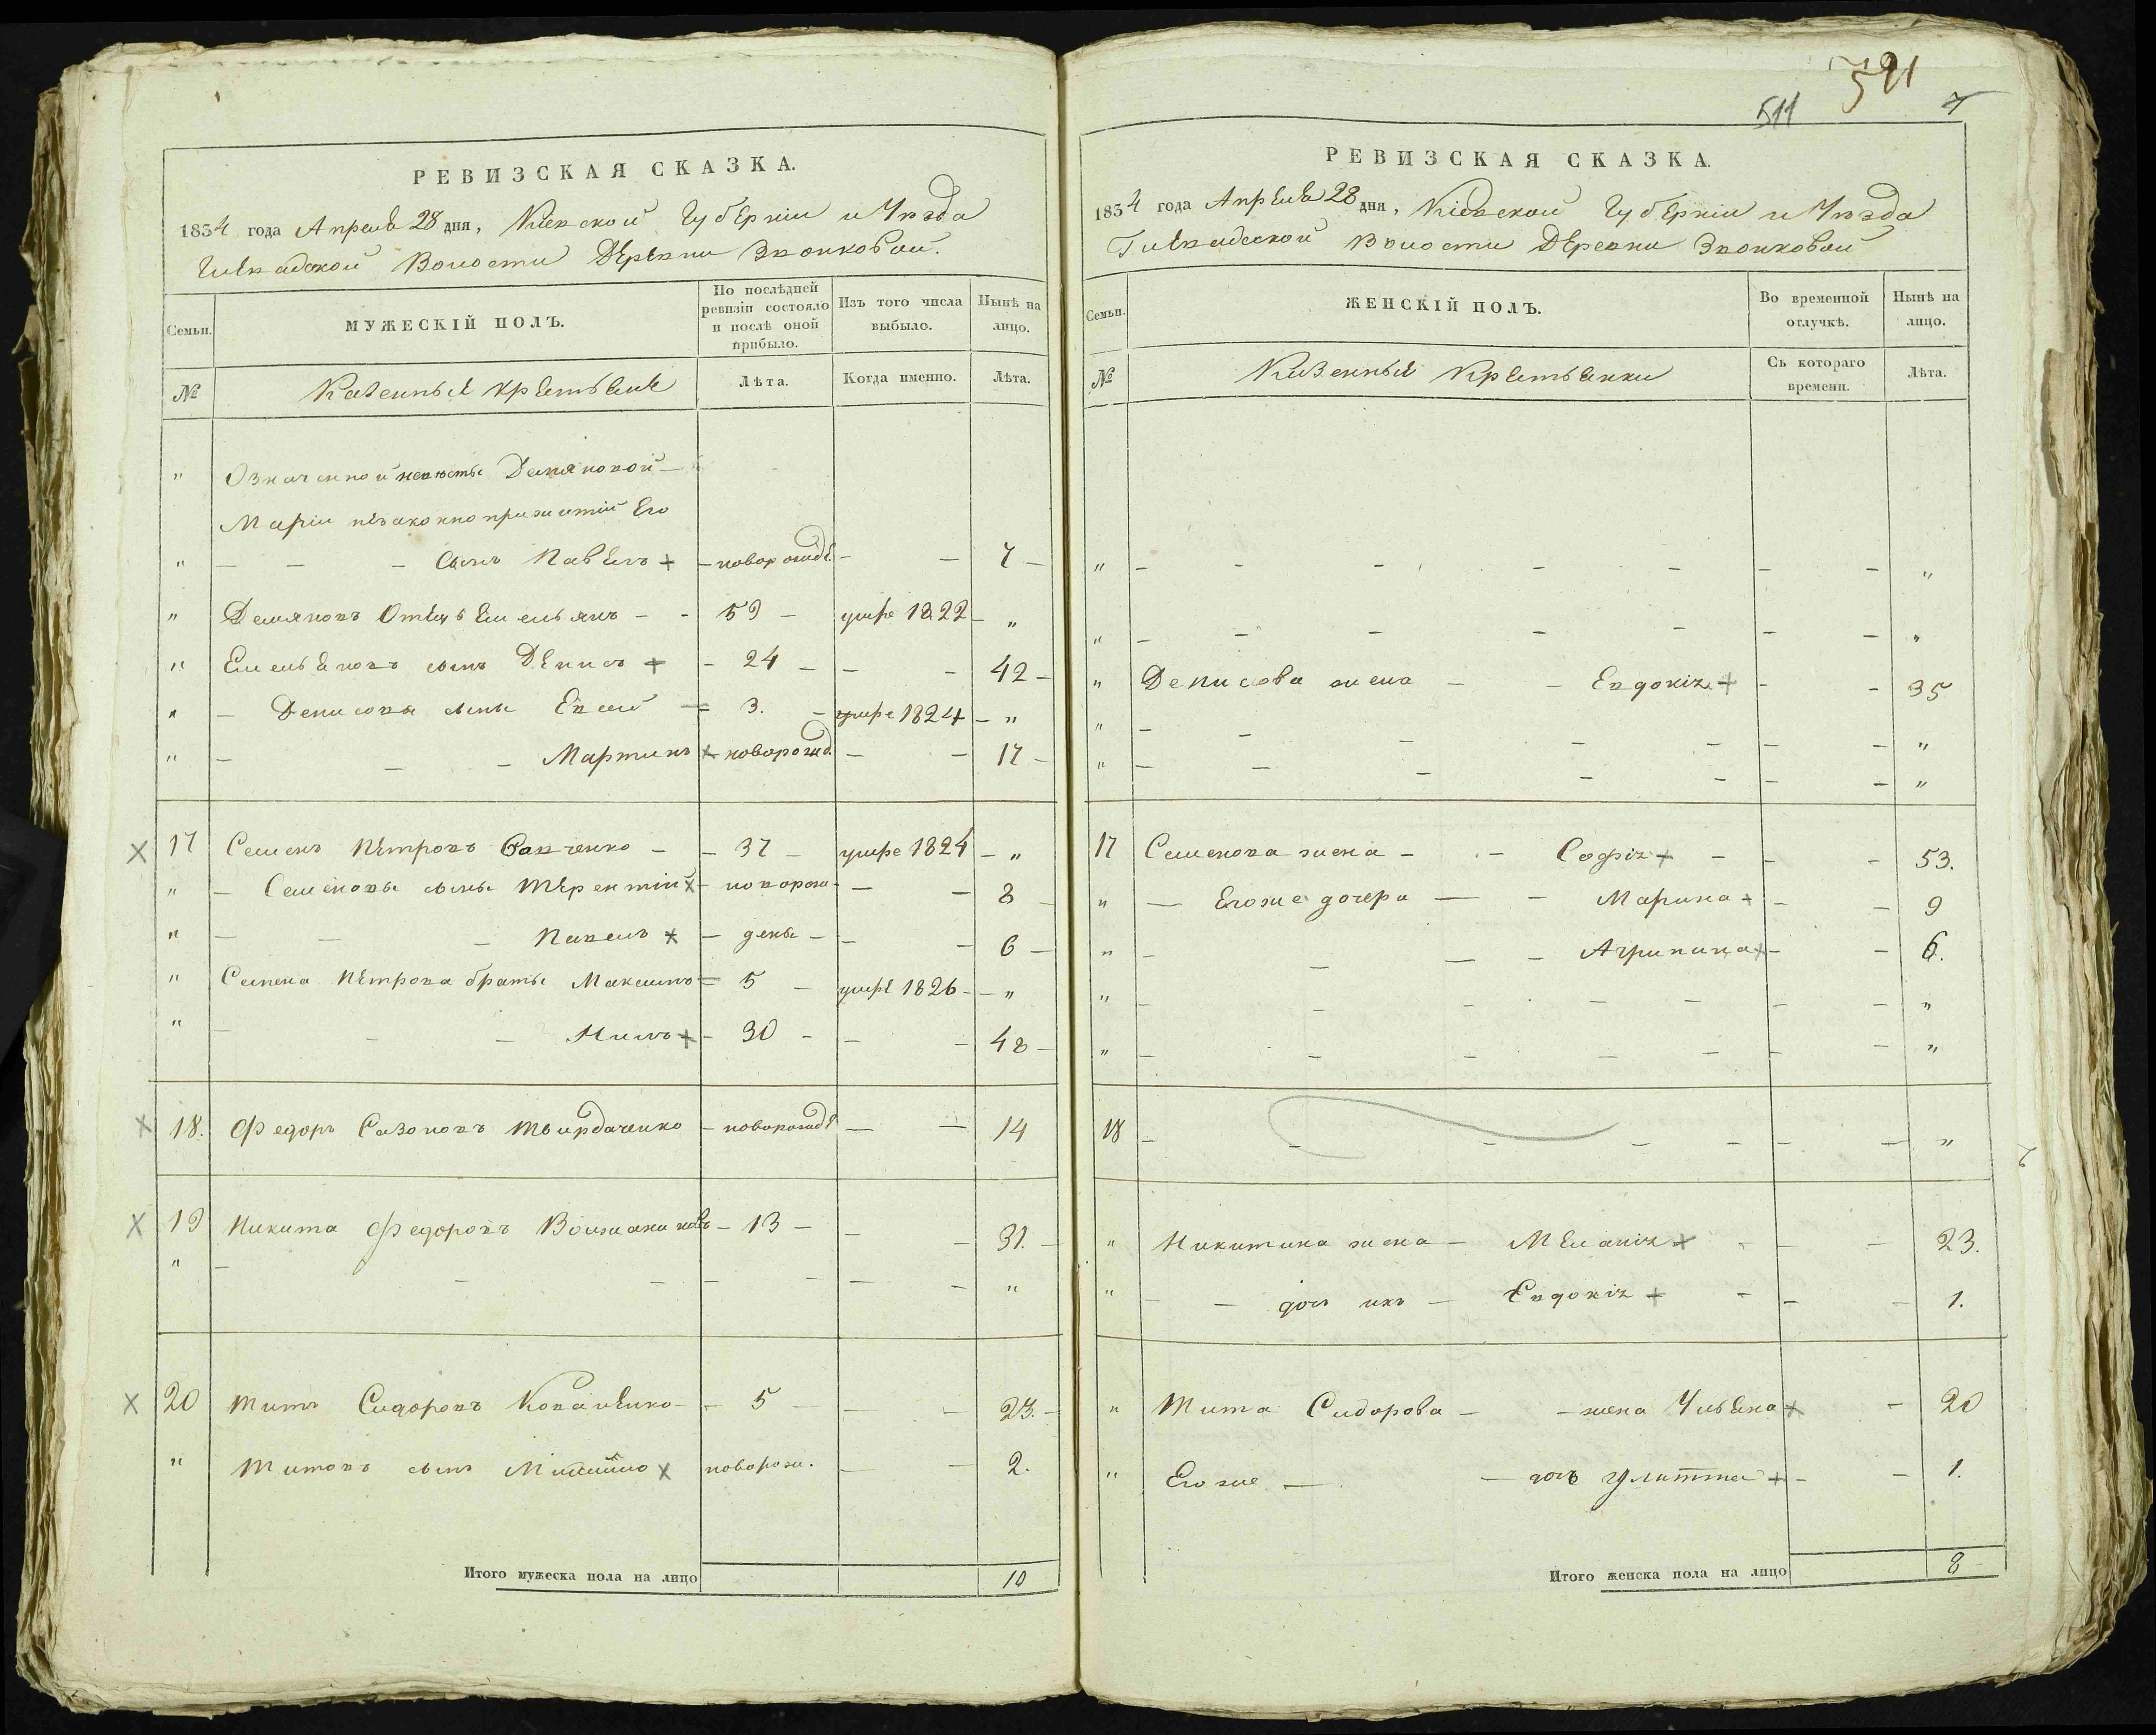 РЕВИЗСКАЯ СКАЗКА.
1834 года Апреля 28 дня, Киевской Губерніи и Уезда
Волости Деревни Звонковой.
Семьи.
МУЖЕСКІЙ ПОЛЪ.
По послѣдней ревизіи состояло и послѣ оной прибыло.
Изъ того числа выбыло.
Нынѣ на лицо.
№
Казенныя крестьяне
Лѣта.
Когда именно.
Лѣта.
" Означенной невѣсты Демяновой —
Маріи незаконно прижитій Его
" — — — сынъ Павелъ + — новорожде. — — 7 —
" Демяновъ Отецъ Емельянъ — - 59 — умре 1822 — "
" Емельяновъ сынъ Денисъ + - 24 — — - 42 —
" — Денисовы сыны Евсей = 3. — умре 1824 — "
" — — — Мартинъ + новорожд. — — 17 —
17 Семенъ Петровъ Савченко — - 37 — умре 1824 — "
" — Семеновы сыны Терентій x — новорож — — — 8 —
" — — — Павелъ x — дены — — - 6 —
" Семена Петрова браты Максимъ = 5 — умре 1826 — — "
" — — — Нилъ + - 30 - — - 48 —
18. Федоръ Сазоновъ Твирдаченко — новорожде — — 14
19 Никита Федоровъ — 13 — — - 31. —
" — — — — — — - "
20 Титъ Сидоровъ — 5 — — - 23. —
" Титовъ сынъ x новорож. — — 2.
Итого мужеска пола на лицо 10
591
511
7
РЕВИЗСКАЯ СКАЗКА.
1834 года Апреля 28 дня, Кіевской Губерніи и Уезда
Волости Деревни Звонковой
Семьи.
ЖЕНСКІЙ ПОЛЪ.
Во временной отлучкѣ.
Нынѣ на лицо.
№
Казенныя Крестьянки
Съ котораго времени.
Лѣта.
" — - - - - — — "
" — — — — — — — "
" Денисова жена — — Евдокія + - - 35
" — — — — — — — "
" — — — — — — — "
17 Семенова жена — - — Софія + — - - 53.
" — Его же дочера — - Марина + - — 9
" — — — - Агрипина + - - 6.
" — — — - — — — "
" — — — — — — — "
18 — - — — — — — "
" Никитина жена — Меланія + - — — 23.
" — — дочь ихъ — Евдокія + - — — 1.
" Тита Сидорова — — жена Ульяна + - 20
" Его же — — дочь Улитта + - — 1.
Итого женска пола на лицо 8